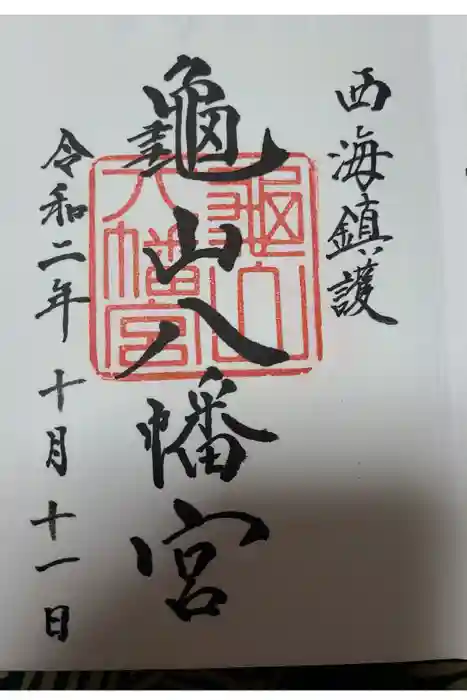 西海鎮護
龜山八幡宮
龜山八幡宮
令和二年 十月十一日